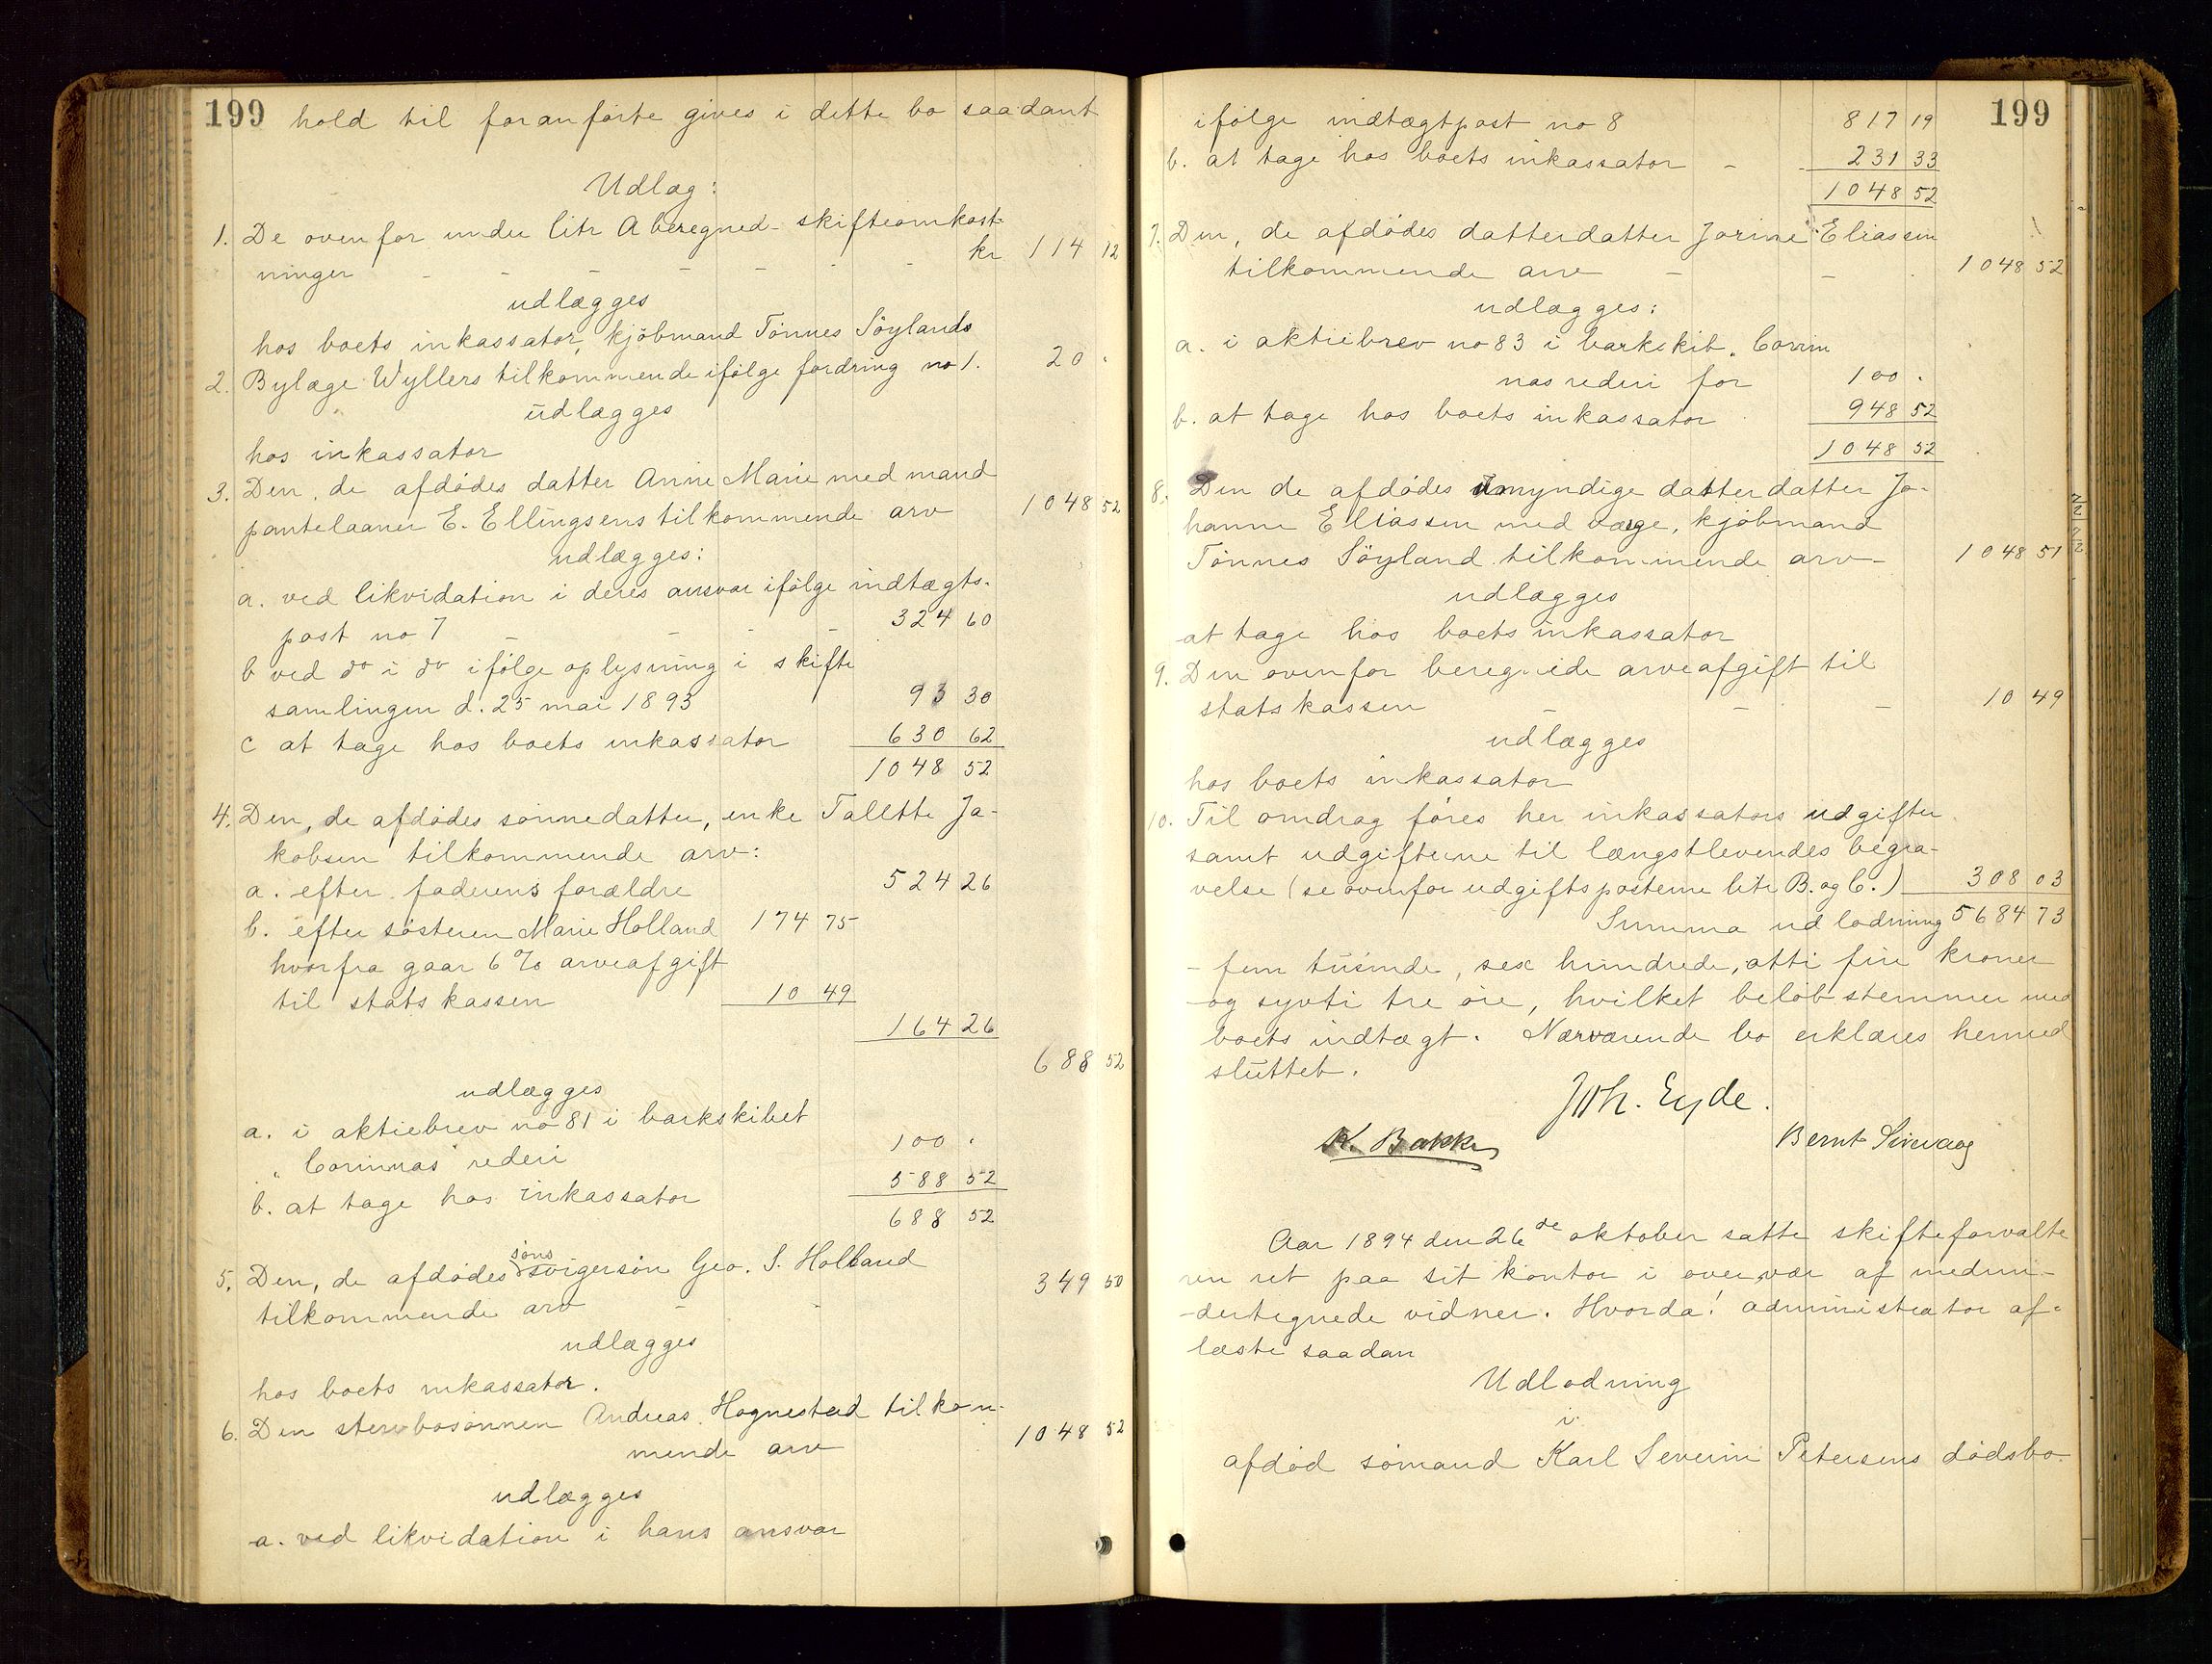 199 hold til foranførte gives i dette bo saadant
Udlæg:
1. De ovenfor under litr A beregned skifteomkost-
ninger - - - - - - - kr 114 12
udlægges
hos boets inkassator, kjöbmand Tönnes Söylands
2. Bylæge Wyllers tilkommende ifølge fordring no 1. 20 .
udlægges
hos inkassator
3. Den, de afdødes datter Anne Marie med mand
pantelaaner E. Ellingsens tilkommende arv 1048 52
udlægges:
a. ved likvidation i deres ansvar ifölge indtægts-
post no 7 - - - - 324 60
b ved do i do ifölge oplysning i skifte
samlingen d. 25 mai 1893 93 30
c at tage hos boets inkassator 630 62
1048 52
4. Den, de afdødes sønnedatter, enke Talette Ja-
kobsen tilkommende arv:
a. efter faderens forældre 524 26
b. efter søsteren Marie Holland 174 75
hvorfra gaar 6% arveafgift
til statskassen 10 49
164 26
688 52
udlægges
a. i aktiebrev no 81 i barkskibet
"Corinnas" rederi 100 .
b. at tage hos inkassator 588 52
688 52
söns
5. Den, de afdødes svigersön Geo. S. Holland
tilkommende arv - - 349 50
udlægges
hos boets inkassator.
6. Den stervbosønnen Andreas Hognestad tilkom-
mende arv 1048 52
udlægges
a. ved likvidation i hans ansvar
199
ifølge indtægtpost no 8 817 19
b. at tage hos boets inkassator - 231 33
1048 52
7. Den, de afdödes datterdatter Jorine Eliassen
tilkommende arv - - 1048 52
udlægges:
a. i aktiebrev no 83 i barkskib. Corin
nas rederi for 100 .
b. at tage hos boets inkassator 948 52
1048 52
8. Den de afdødes umyndige datterdatter Jo-
hanne Eliassen med værge, kjöbmand
Tönnes Söyland tilkommende arv - 1048 51
udlægges
at tage hos boets inkassator
9. Den ovenfor beregnede arveafgift til
statskassen - - - 10 49
udlægges
hos boets inkassator
10. Til omdrag føres her inkassators udgifter
samt udgifterne til længstlevendes begra-
velse (se ovenfor udgiftsposterne litr B. og C.) 308 03
Summa udlodning 5684 73
- fem tusinde, sex hundrede, otti fire kroner
- og sytti tre øre, hvilket beløb stemmer med
boets indtægt. Nærværende bo erklæres hermed
sluttet.
Joh. Eyde.
K. Bakke Bernt Sirevaag
Aar 1894 den 26de oktober satte skifteforvalte
ren ret paa sit kontor i overvær af medun-
-dertegnede vidner. Hvorda! administrator af-
læste saadan
Udlodning
i
afdød sømand Karl Severin Petersens dødsbo.